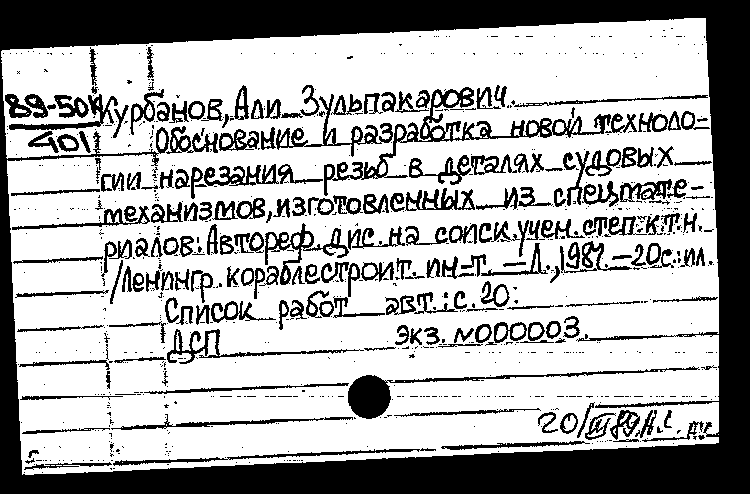 89-50к Курбанов, Али Зульпакарович.
401 Обоснование и разработка новой техноло-
гии нарезания резьб в деталях судовых
механизмов, изготовленных из спецмате-
риалов: Автореф. дис. на соиск. учен. степ. к.т.н.
/Ленингр. кораблестроит. ин-т. — Л., 1987. — 20 с.: ил.
Список работ авт.: с. 20.
ДСП экз. N000003.
20/III 89